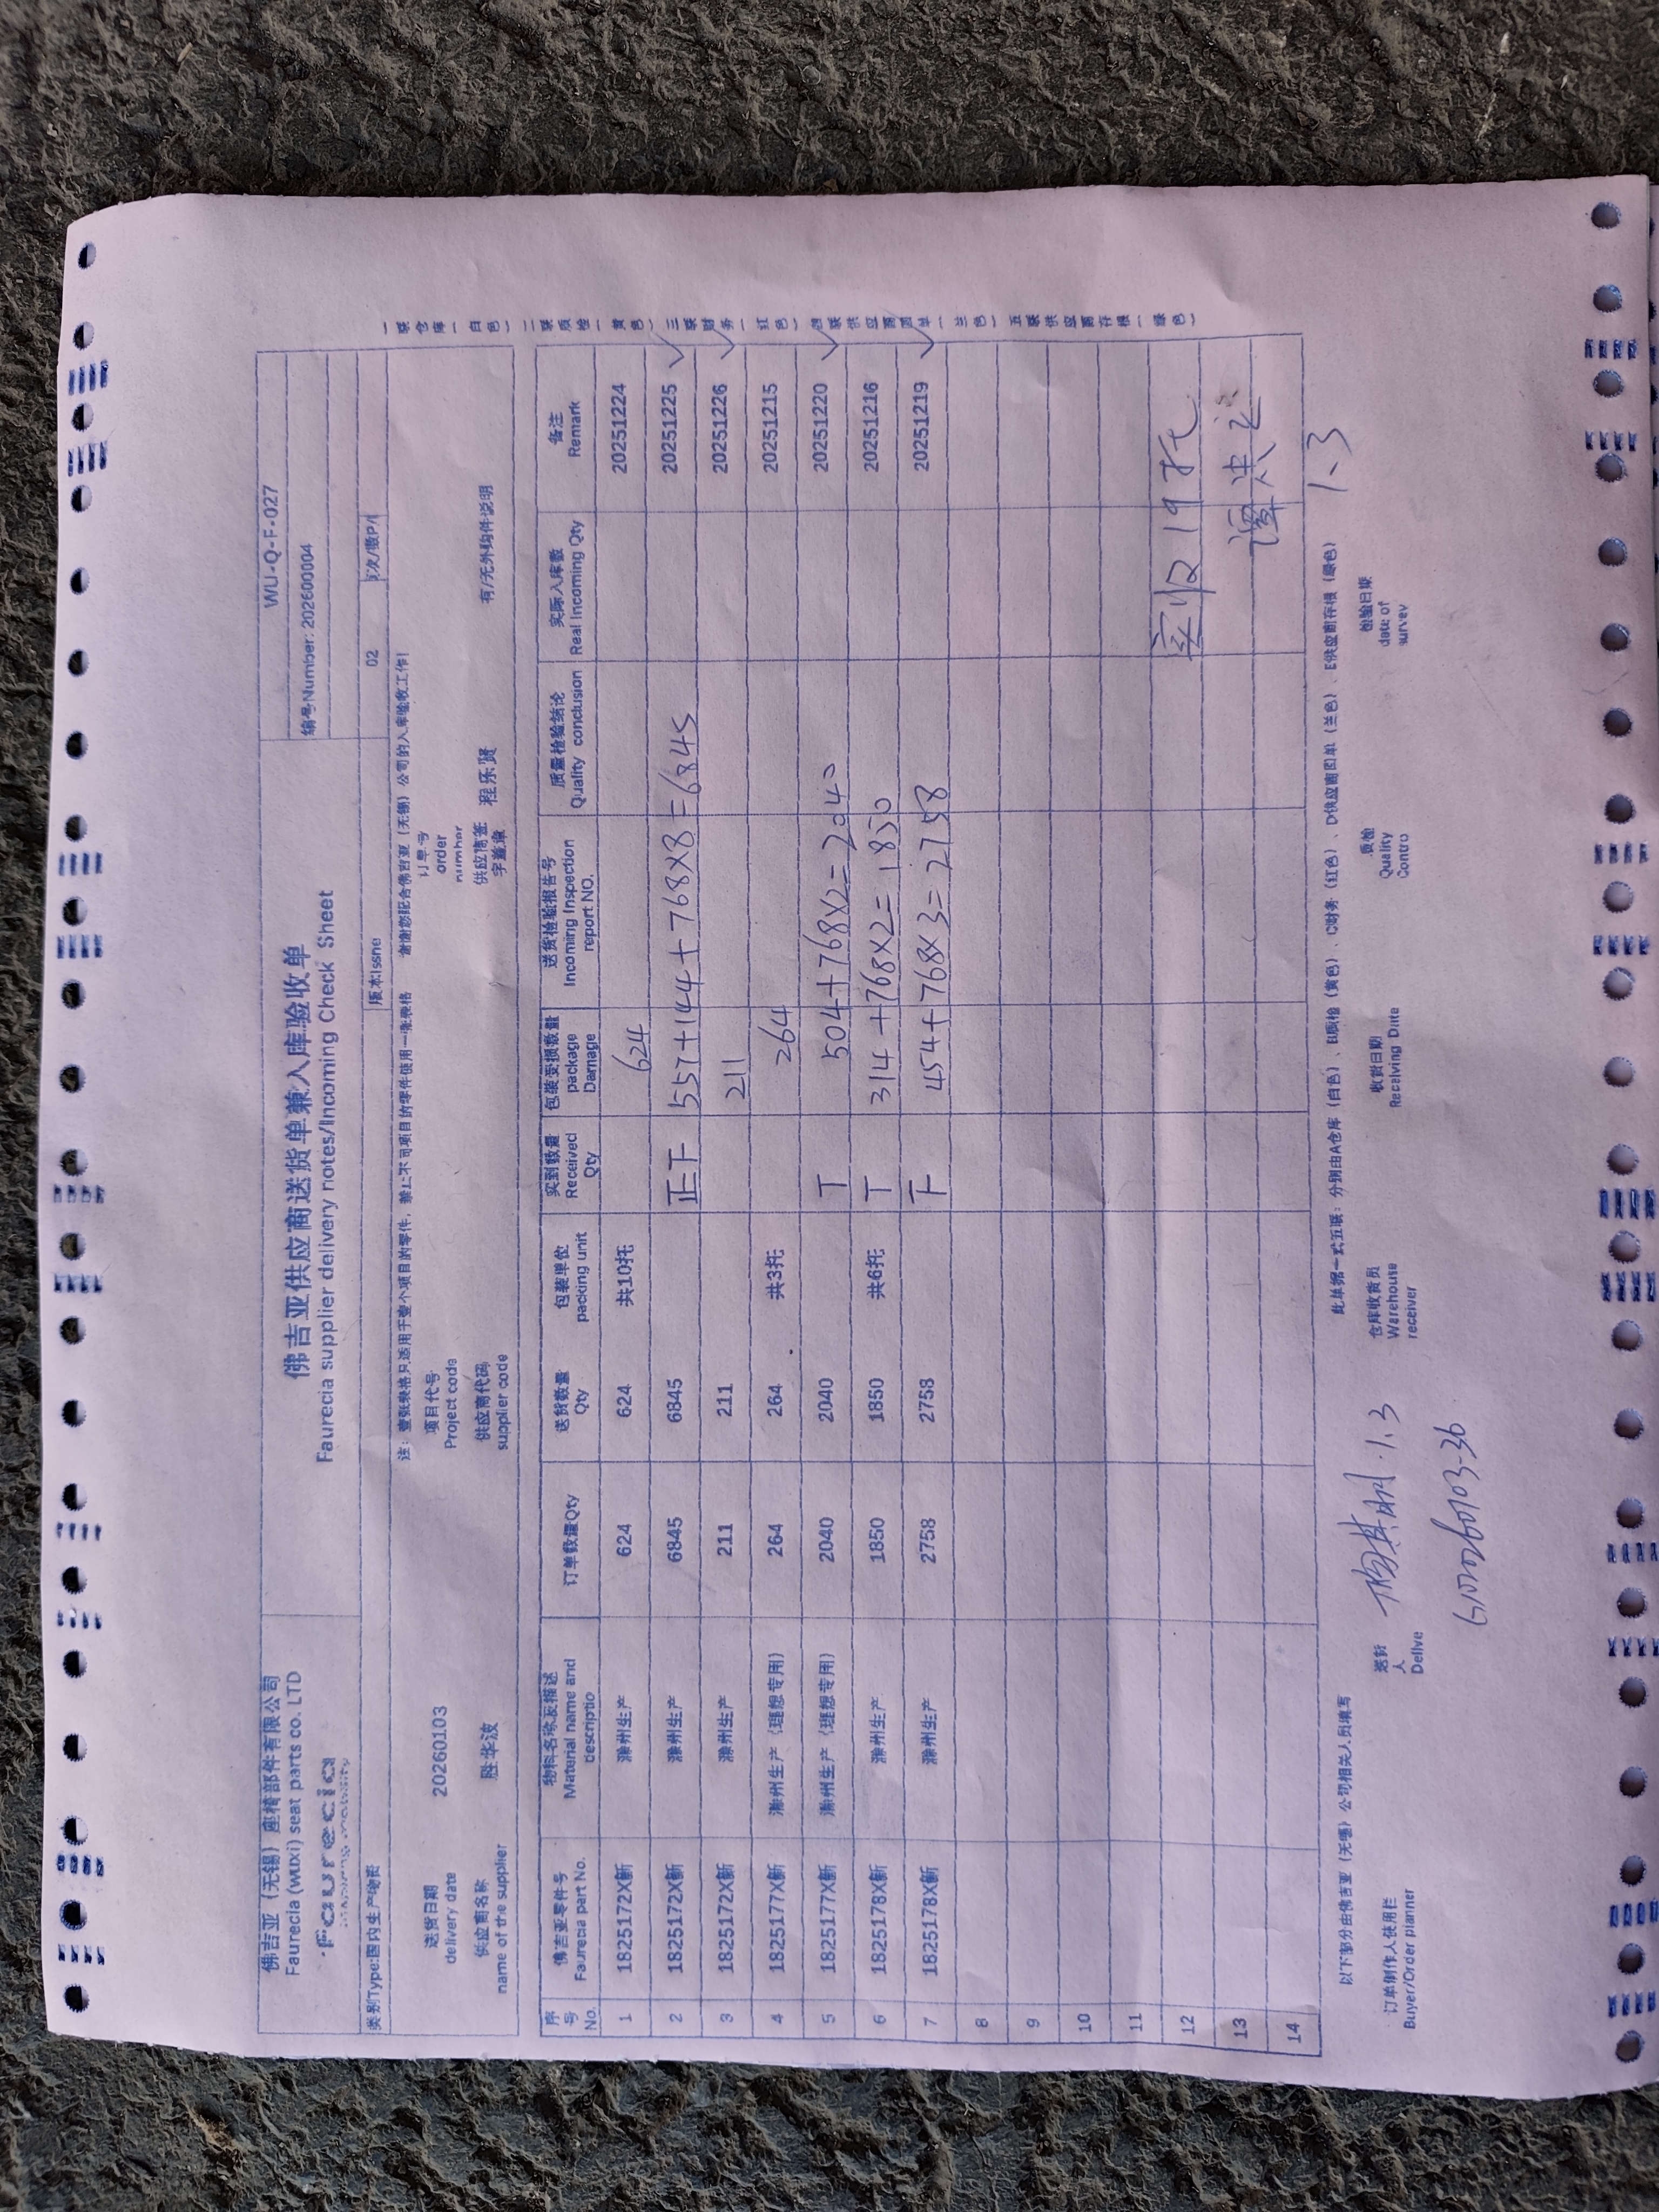 佛吉亚（无锡）座椅部件有限公司
Faurecia (wuxi) seat parts co. LTD
faurecia
佛吉亚供应商送货单兼入库验收单
Faurecia supplier delivery notes/Incoming Check Sheet
WU-Q-F-027
编号Number: 202600004
类别Type:国内生产物资
版本Issne 02 页次/数P/
注：壹张表格只适用于壹个项目的零件，禁止不同项目的零件使用一张表格 谢谢您配合佛吉亚（无锡）公司的入库验收工作！
送货日期 delivery date 20260103 项目代号 Project code 订单号 order number
供应商名称 name of the supplier 胜华波 供应商代码 supplier code 供应商签字盖章 程乐贤 有/无外购件说明
序号 No. 佛吉亚零件号 Faurecia part No. 物料名称及描述 Material name and descriptio 订单数量Qty 送货数量 Qty 包装单位 packing unit 实到数量 Received Qty 包装受损数量 package Damage 送货检验报告号 Incoming Inspection report NO. 质量检验结论 Quality conclusion 实际入库数 Real Incoming Qty 备注 Remark
1 1825172X新 滁州生产 624 624 共10托 624 20251224
2 1825172X新 滁州生产 6845 6845 正下 557+144+768×8=6845 20251225 ✓
3 1825172X新 滁州生产 211 211 211 20251226 ✓
4 1825177X新 滁州生产（理想专用） 264 264 共3托 264 20251215
5 1825177X新 滁州生产（理想专用） 2040 2040 T 504+768×2=2040 20251220 ✓
6 1825178X新 滁州生产 1850 1850 共6托 T 314+768×2=1850 20251216
7 1825178X新 滁州生产 2758 2758 下 454+768×3=2758 20251219 ✓
8
9
10
11
12 实收19托
13
14
1.3
一联仓库（白色）二联质检（黄色）三联财务（红色）四联供应商回单（兰色）五联供应商存根（绿色）
以下部分由佛吉亚（无锡）公司相关人员填写 此单据一式五联：分别由A仓库（白色）、B质检（黄色）、C财务（红色）、D供应商回单（兰色）、E供应商存根（绿色）
订单制作人使用栏 Buyer/Order planner 送货人 Delive 1.3 仓库收货员 Warehouse receiver 收货日期 Receiving Date 质检 Quality Contro 检验日期 date of survey